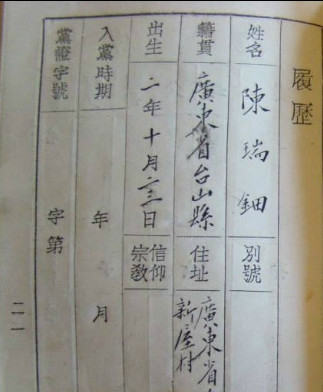 履歷
姓名 陳瑞鈿 別號
籍貫 廣東省台山縣 住址 廣東省
新屋村
出生 二年十月二三日 信仰宗教
入黨時期 年 月
黨證字號 字第
二一